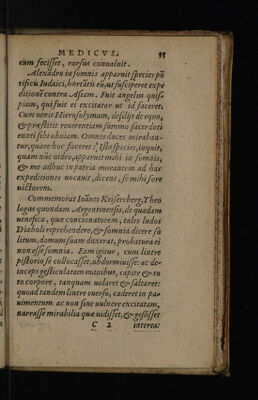 MEDICVS. 55
cùm fecisset, rursus conualuit.
Alexādro in somnis apparuit species pō
tificū Iudaici, hortātis eū, ut susciperet expe
ditionē contra Asiam. Fuit angelus quis-
piam, qui fuit ei excitator ut id faceret.
Cum uenit Hierosolymam, desilijt de equo,
& præstitit reuerentiam summo sacerdoti
exeūti sibi obuiam. Omnes duces miraban-
tur, quare hoc faceret? Ista species, inquit,
quam nūc uideo, apparuit mihi in somnis,
& me adhuc in patria morantem ad has
expeditiones uocauit, dicens, se mihi fore
uictorem.
Commemorat Ioānes Keisersberg, Theo
logus quondam Argentinensis, de quadam
uenefica, quæ concionatorem, tales ludos
Diaboli reprehendere, & somnia dicere so
litum, domum suam duxerat, probatura ei
non esse somnia. Ea igitur, cum lintre
pistorio se collocasset, obdormiuisse: ac de-
inceps gesticulatam manibus, capite & to
to corpore, tanquam uolaret & saltaret:
quoad tandem lintre euerso, caderet in pa-
uimentum. ac non sine uulnere excitatam,
narrasse mirabilia quæ uidisset, & gessisset
C 2 interea: